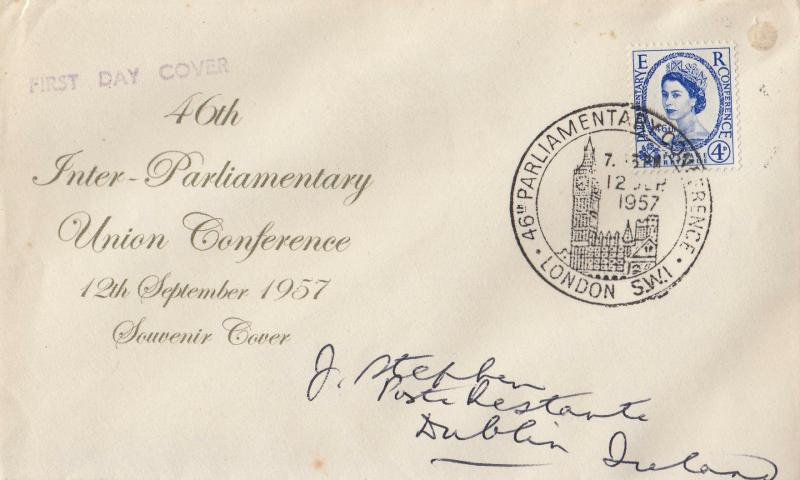 FIRST DAY COVER
46th
Inter-Parliamentary
Union Conference
12th September 1957
Souvenir Cover
E R
PARLIAMENTARY CONFERENCE
46TH
4D
46th PARLIAMENTARY CONFERENCE
12 SEP
1957
LONDON S.W.1
J. Stephen
Poste Restante
Dublin Ireland